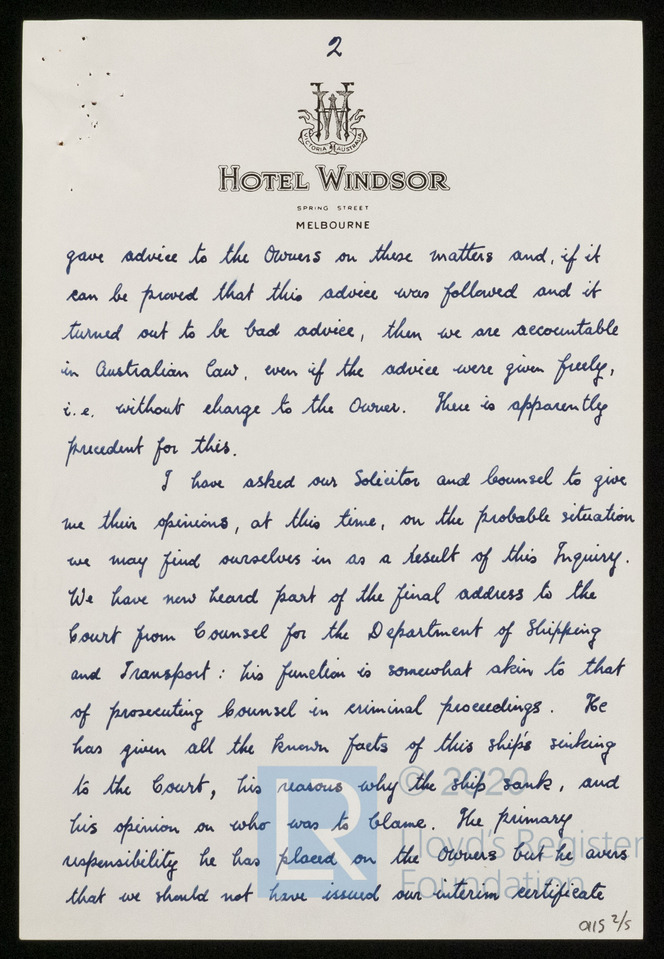 2
VICTORIA AUSTRALIA
HOTEL WINDSOR
SPRING STREET
MELBOURNE
gave advice to the Owners on these matters and, if it
can be proved that this advice was followed and it
turned out to be bad advice, then we are accountable
in Australian Law, even if the advice were given freely,
i.e. without charge to the Owner. There is apparently
precedent for this.
I have asked our Solicitor and Counsel to give
me their opinions, at this time, on the probable situation
we may find ourselves in as a result of this Inquiry.
We have now heard part of the final address to the
Court from Counsel for the Department of Shipping
and Transport: his function is somewhat akin to that
of prosecuting Counsel in criminal proceedings. He
has given all the known facts of this ship's sinking
to the Court, his reasons why the ship sank, and
his opinion on who was to blame. The primary
responsibility he has placed on the Owners but he avers
that we should not have issued our interim certificate
0115 2/5
LR
© 2020
Lloyd's Register
Foundation